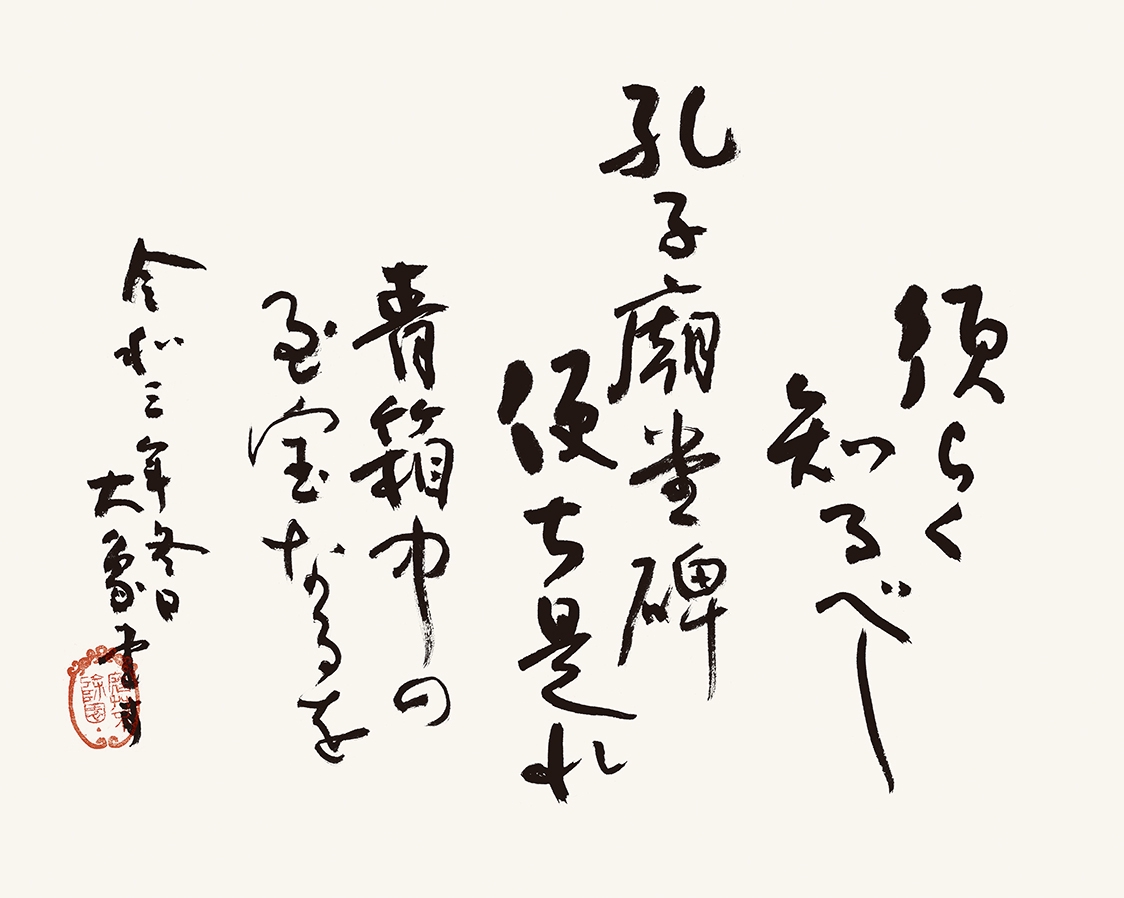 須らく
知るべし
孔子廟堂碑
便ち是れ
青箱中の
至宝なるを
令和三年冬日
大象書